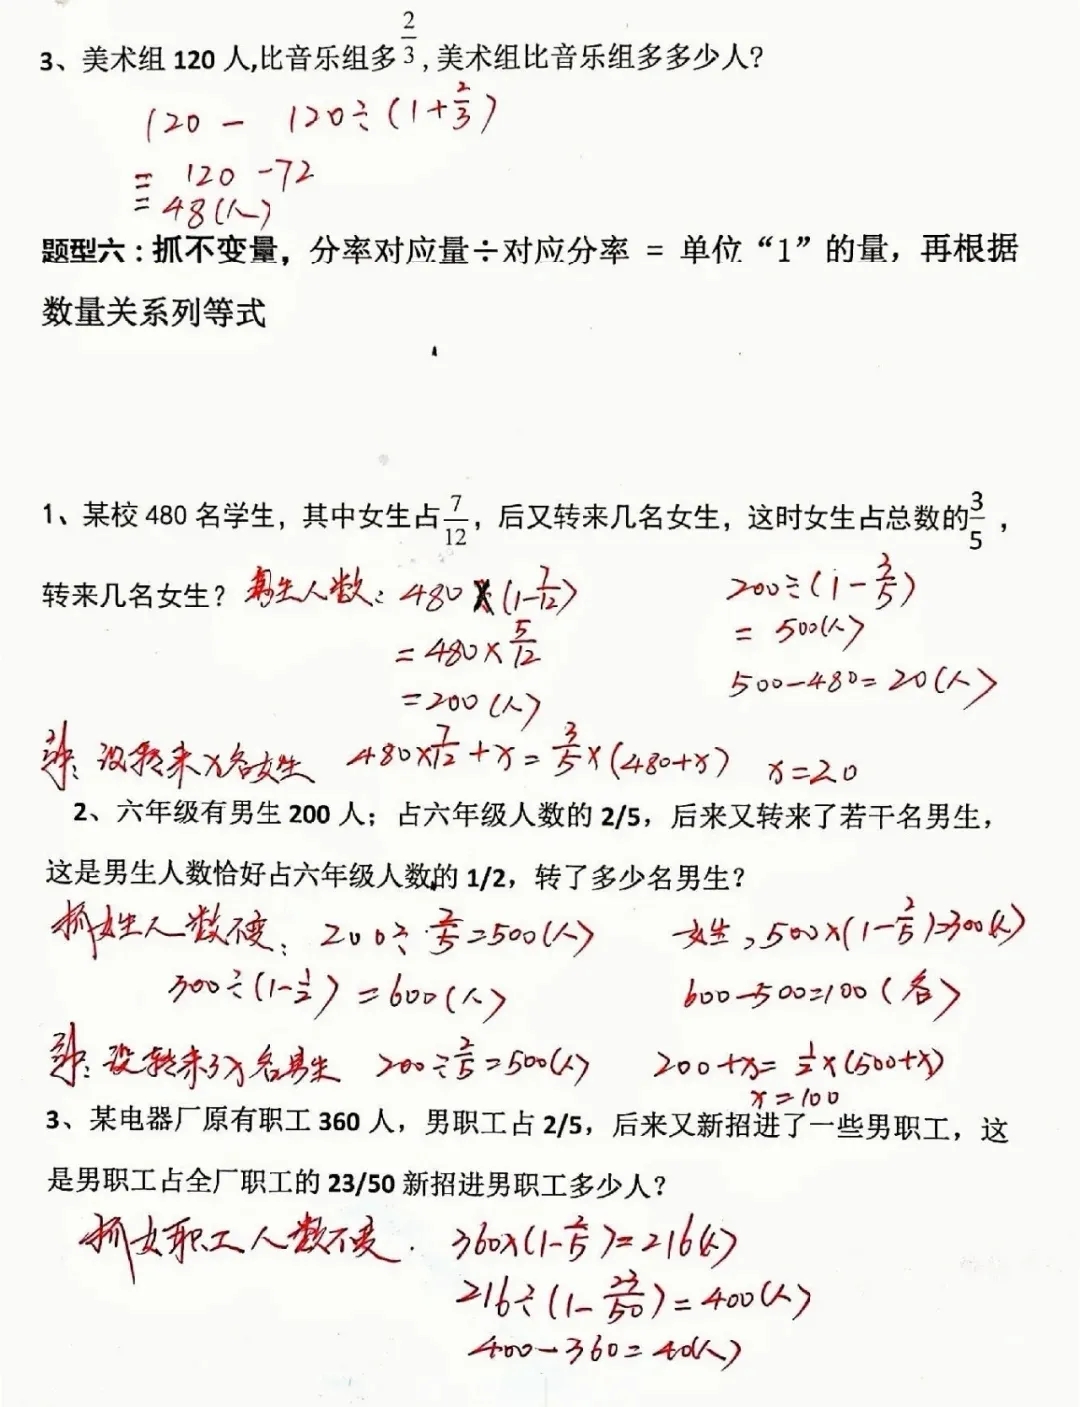 3、美术组 120 人,比音乐组多2/3,美术组比音乐组多多少人?
120 - 120÷(1+2/3)
= 120-72
= 48(人)
题型六：抓不变量，分率对应量÷对应分率 = 单位“1”的量，再根据
数量关系列等式
1、某校 480 名学生，其中女生占7/12，后又转来几名女生，这时女生占总数的3/5，
转来几名女生？ 男生人数: 480×(1-7/12) 200÷(1-3/5)
=480×5/12 = 500(人)
=200(人) 500-480=20(人)
解: 设转来x名女生 480×7/12+x=3/5×(480+x) x=20
2、六年级有男生 200 人；占六年级人数的 2/5，后来又转来了若干名男生，
这是男生人数恰好占六年级人数的 1/2，转了多少名男生？
抓女生人数不变: 200÷2/5=500(人) 女生, 500×(1-2/5)=300(人)
300÷(1-1/2)=600(人) 600-500=100(名)
解: 设转来了x名男生 200÷2/5=500(人) 200+x=1/2×(500+x)
x=100
3、某电器厂原有职工 360 人，男职工占 2/5，后来又新招进了一些男职工，这
是男职工占全厂职工的 23/50 新招进男职工多少人？
抓女职工人数不变. 360×(1-2/5)=216(人)
216÷(1-23/50)=400(人)
400-360=40(人)